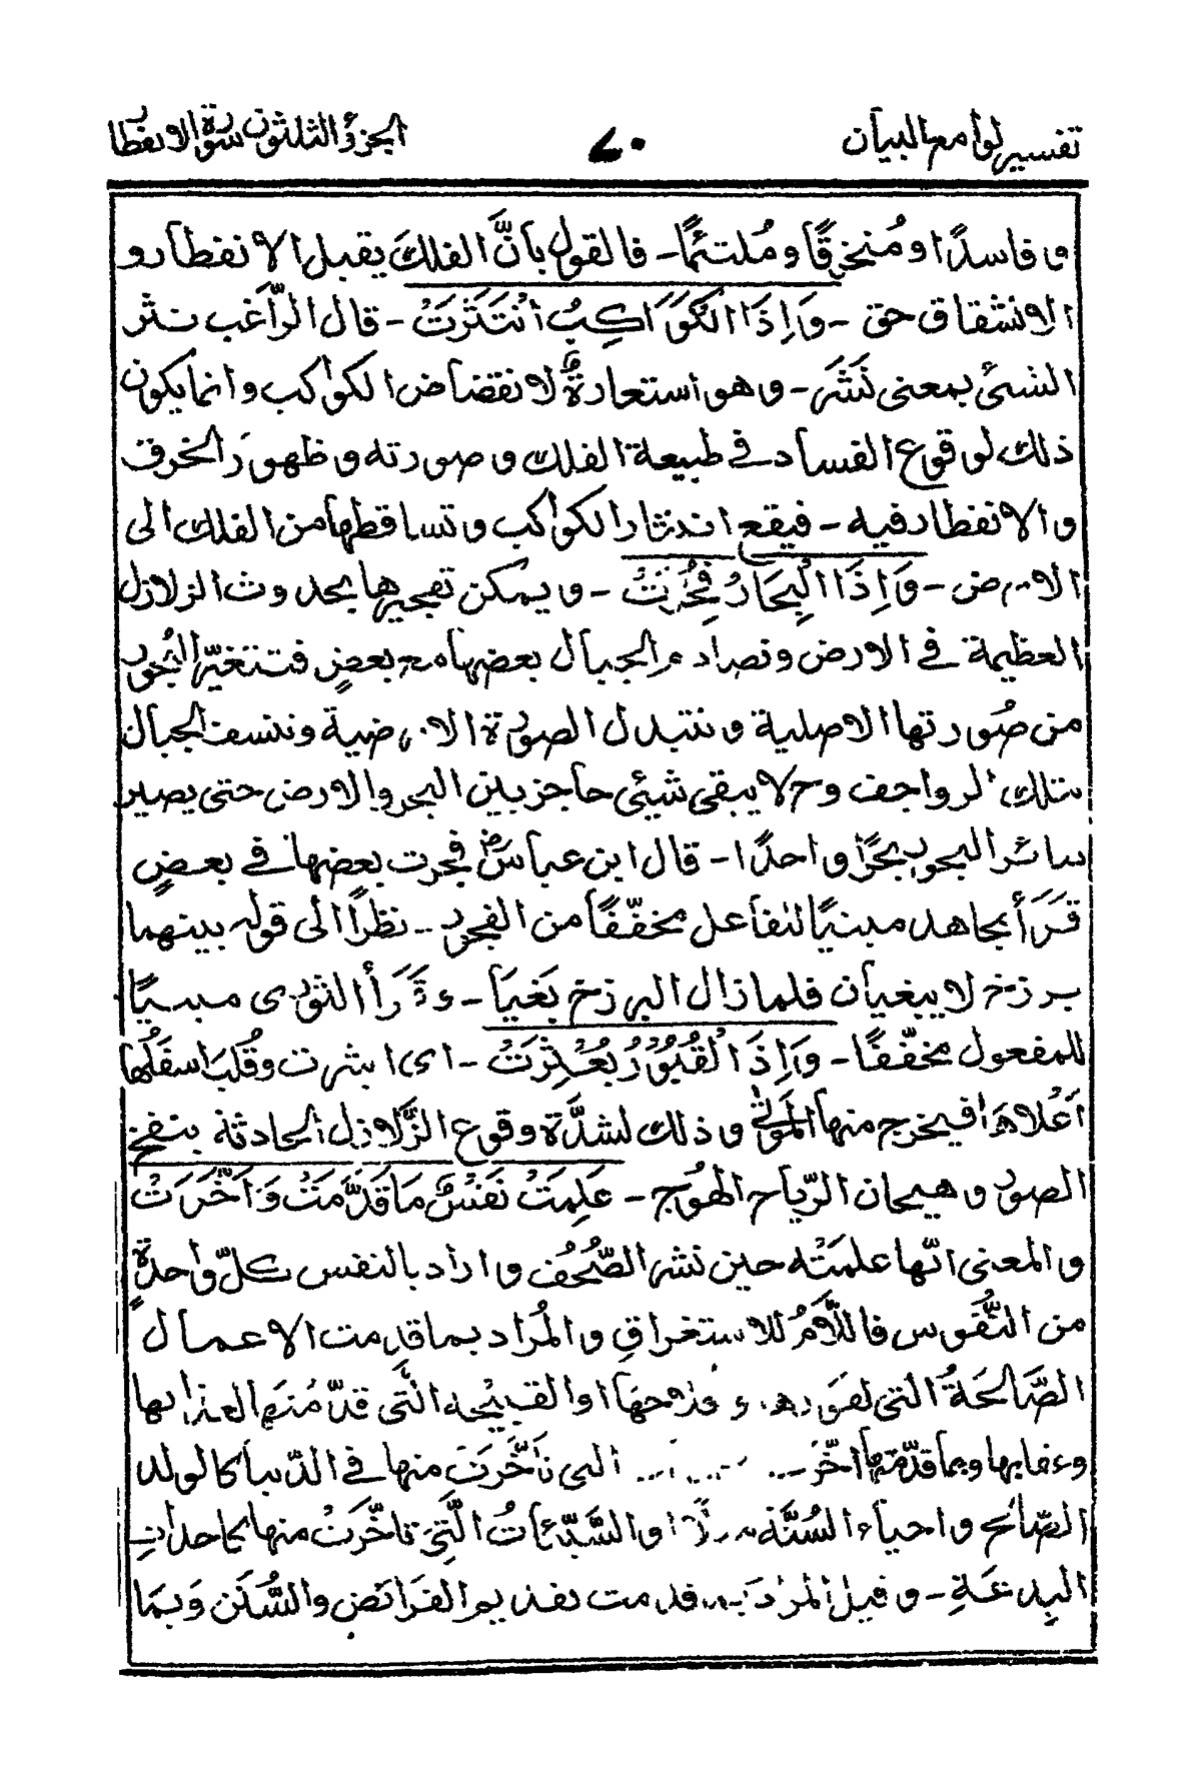 تفسير لوامع البيان
٧٠
الجزؤ الثلثون سورة الانفطار
و فاسدًا و مُنخرقًا و مُلتئمًا - فالقول بأنَّ الفلكَ يقبل الانفطار و
الانشقاق حق - وَاِذَا الْكَوَاكِبُ انْتَثَرَتْ - قال الرّاغب نثر
الشئ بمعنى نَشَرَ - و هو استعارةٌ لانقضاض الكواكب و انما يكون
ذلك لوقوع الفساد في طبيعة الفلك و صورته و ظهور الخرق
و الانفطار فيه - فيقع اندثار الكواكب و تساقطها من الفلك الى
الارض - وَاِذَا الْبِحَارُ فُجِّرَتْ - و يمكن تفجيرها بحدوث الزلازل
العظيمة في الارض و تصادم الجبال بعضها مع بعضٍ فتتغيّر البُحور
من صُورتها الاصلية و تتبدل الصورة الارضية و تنسف الجبال
بتلك الرواجف و ح لا يبقى شيئ حاجز بين البحر و الارض حتى يصير
سائر البحور بحرًا واحدًا - قال ابن عباسؓ فجرت بعضها في بعضٍ
قَرَأَ مجاهد مبنيًا للفاعل مخفّفًا من الفجور - نظرًا الى قوله بينهما
برزخ لا يبغيان فلما زال البرزخ بَغيَا - و قَرَأ الثوري مبنيًا
للمفعول مخفّفًا - وَاِذَا الْقُبُوْرُ بُعْثِرَتْ - اى ابثرت و قُلبَ اسفَلُها
اَعْلاهَا فيخرج منها المَوتٰى و ذلك لشدَّة وقوع الزَّلازل الحادثة بنفخ
الصور و هيجان الرّياح الهُوج - عَلِمَتْ نَفْسٌ مَا قَدَّمَتْ وَاَخَّرَتْ
و المعنى انّها علمَتْه حين نشر الصُّحُف و اراد بالنفس كلّ واحدةٍ
من النُّفُوس فاللَّامُ للاستغراقِ و المُراد بما قدمت الاعمال
الصَّالحَةُ التى او القبيحه الَّتى قدّمَتها
و عقابها و بما قدّمتها اخّر التى تأخَّرَت منها في الدّنيا كالولد
الصَّالح و احياء السُنَّة او السَّيّئاتُ الَّتِى تاخَّرَتْ منها كاحداثِ
البِدعَةِ - و قيل المراد قدمت تقديم الفَرائض و السُّنَن وَبمَا